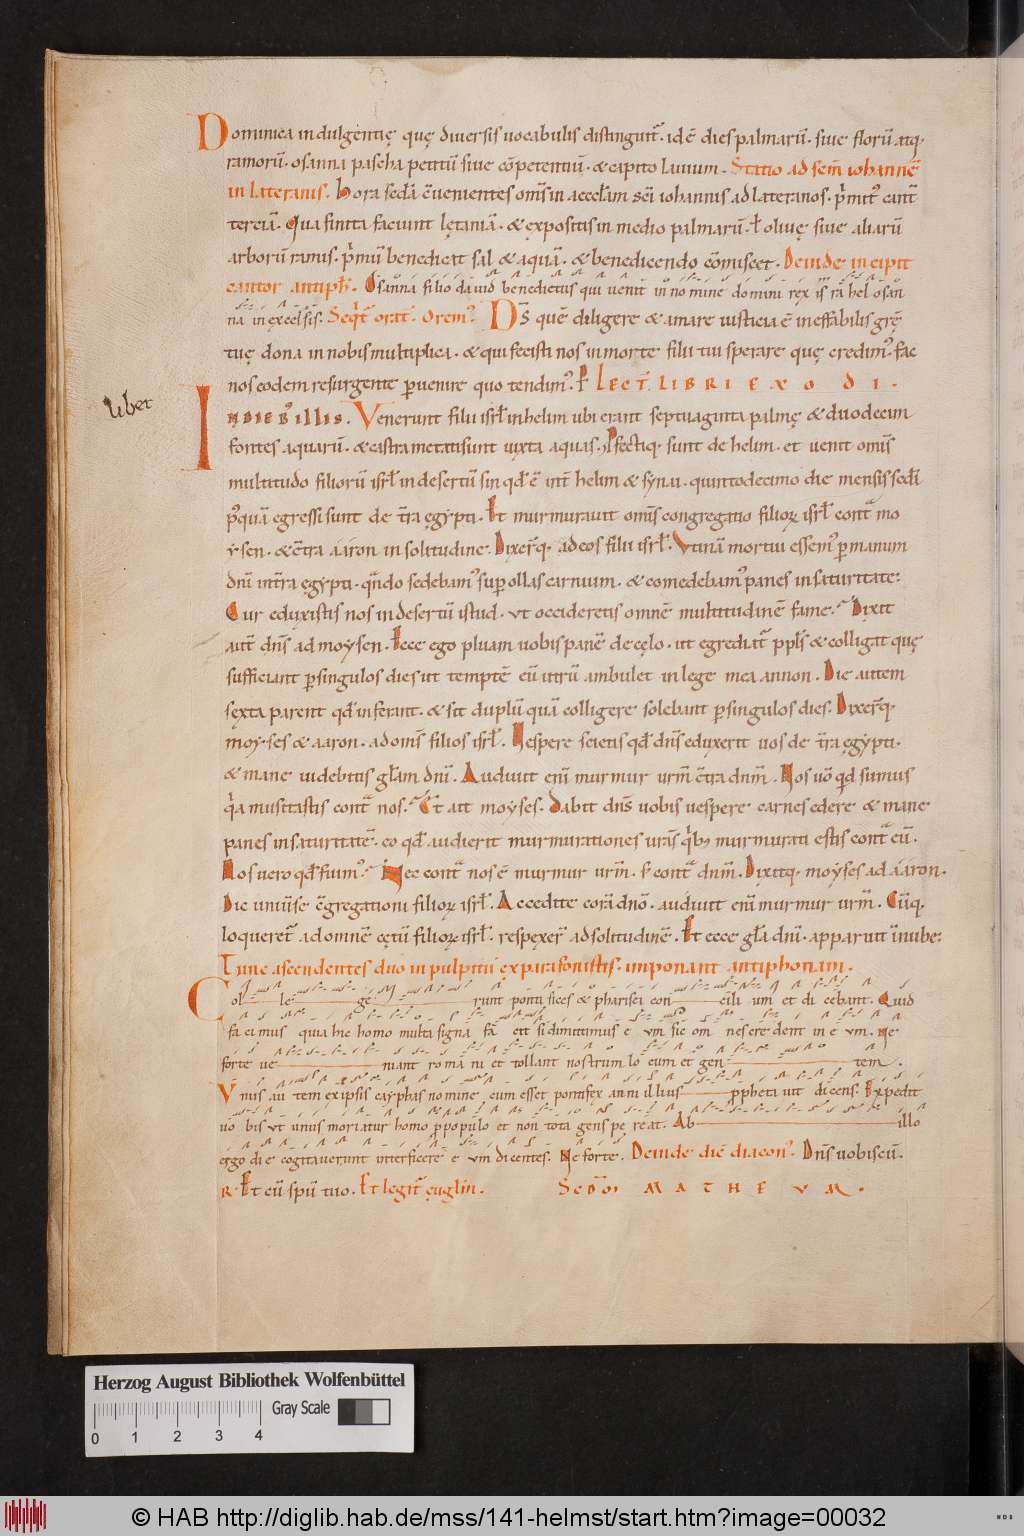 Dominica indulgentię quę diversis uocabulis distinguit̃. id ē dies palmarū. siue florū atq;
ramorū. osanna pascha petitū siue cōpetentiū. & capitolauium. Statio ad sc̄m iohannē
in lateranis. Hora sc̄da c̄uenientes om̄s in ecclam sc̄i iohannis ad lateranos. p̄mit̃ cant̃
terciā. Qua finita faciunt lętaniā. & expositis in medio palmarū. ł oliuę siue aliarū
arborū ramis. p̄mū benedicat sal & aquā. & benedicendo cōmisceat. Deinde incipit
cantor antiph̄. Osanna filio dauid benedictus qui uenit in nomine domini rex isrł osan
na in excelsis. Seq̄t orat̃. Orem̓. D̄s quē diligere & amare iusticia ē ineffabilis grę̄
tuę dona in nobis multiplica. & qui fecisti nos in morte filii tui sperare quę credim̓. fac
nos eodem resurgente peruenire quo tendim̓. P Lect̃. libri exodi.
liber
In dieb; illis. Venerunt filii isrł in helim ubi erant septuaginta palmę & duodecim
fontes aquarū. & castrametati sunt iuxta aquas. Pfectiq; sunt de helim. et uenit om̄s
multitudo filiorū isrł in desertū sin qd̄ ē int̃ helim & synai. quintodecimo die mensis sc̄di
p̓quā egressi sunt de t̃ra ęgypti. Et murmurauit om̄s congregatio filioꝝ isrł cont̃ mo
ysen. & c̄tra aaron in solitudine. Dixer̄q; ad eos filii isrł. Vtinā mortui essem̓ p manum
dn̄i in t̃ra ęgypti. qn̄do sedebam̓ sup ollas carnium. & comedebam̓ panes in saturitate.
Cur eduxistis nos in desertū istud. ut occideretis omnē multitudinē fame. Dixit
aut̃ dn̄s ad moysen. Ecce ego pluam uobis panē de cęlo. ut egrediat̃ ppl̄s & colligat quę
sufficiant p singulos dies ut temptē eū utrū ambulet in lege mea an non. Die autem
sexta parent qd̄ inferant. & sit duplū quā colligere solebant p singulos dies. Dixer̄q;
moyses & aaron. ad om̄s filios isrł. Vespere scietis qd̄ dn̄s eduxerit uos de t̃ra ęgypti.
& mane uidebitis gl̄am dn̄i. Audiuit eni murmur urm̄ c̄tra dnm̄. Nos uō qd̄ sumus
q̄a musitastis cont̃ nos. Et ait moyses. Dabit dn̄s uobis uespere carnes edere & mane
panes in saturitatē. eo qd̄ audierit murmurationes urās q̄b; murmurati estis cont̃ eū.
Nos uero qd̄ sum̓. Nec cont̃ nos ē murmur urm̄. s; cont̃ dnm̄. Dixitq; moyses ad aaron.
Dic uniuse c̄gregationi filioꝝ isrł. Accedite corā dn̄o. audiuit eni murmur urm̄. Cūq;
loqueret̃ ad omnē cętū filioꝝ isrł. respexer̄ ad solitudinē. Et ecce gl̄a dn̄i. apparuit in nube.
Tunc ascendentes duo in pulpitū ex parafonistis. imponant antiphonam.
Col le ge runt pontifices & pharisei con cili um et dicebant. Quid
facimus quia hic homo multa signa facit si dimittimus eum sic omnes credent in eum. Ne
forte ue niant romani et tollant nostrum locum et gen tem.
Vnus autem ex ipsis cayphas nomine cum esset pontifex anni illius ppheta uit dicens. Expedit
uobis ut unus moriatur homo p populo et non tota gens pereat. Ab illo
ergo die cogitauerunt interficere eum dicentes. Ne forte. Deinde dic̄ diacon̓. Dn̄s uobiscū.
R. Et cū spū tuo. Et legit̃ euglīm. Scd̄m MATHEVM.
Herzog August Bibliothek Wolfenbüttel
Gray Scale
0 1 2 3 4
© HAB http://diglib.hab.de/mss/141-helmst/start.htm?image=00032